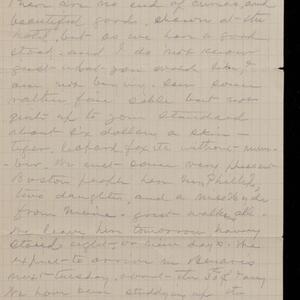 There are no end of curios, and
beautiful goods, shown at the
hotel, but as we have a good
stock, and I do not know
just what you would like, I
am not buying. Seen some
rather fine sable but not
quite up to your standard
about six dollars a skin -
tiger, leopard fox etc without num-
ber. We met some very pleasant
Boston people here
two daughters, and a Miss Hyde
from Maine.
We leave here tomorrow having
stayed eight or nine days. We
expect to arrive in Benares
next Tuesday, about the
We have been studying up the